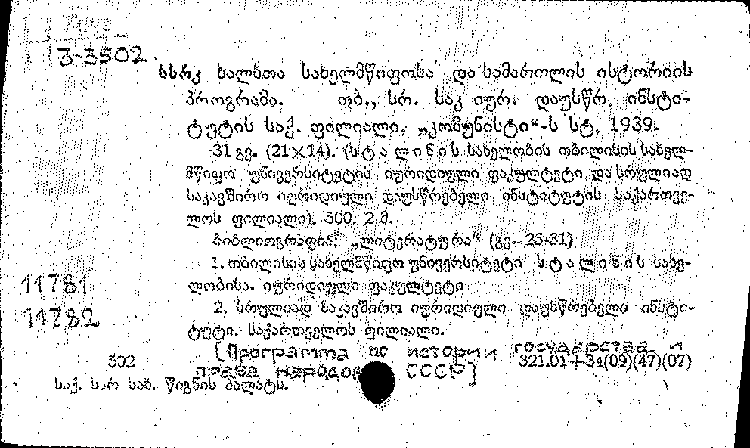 ვ-3502
სსრკ ხალხთა სახელმწიფოსა და სამართლის ისტორიის
პროგრამა. თბ., სრ. საკ. იურ. დაუსწრ. ინსტი-
ტუტის საქ. ფილიალი. „კომუნისტი“-ს სტ. 1939.
31 გვ. (21×14). (სტალინის სახელობის თბილისის სახელ-
მწიფო უნივერსიტეტის იურიდიული ფაკულტეტი და სრულიად
საკავშირო იურიდიული დაუსწრებელი ინსტიტუტის საქართვე-
ლოს ფილიალი). 500. 2 მ.
ბიბლიოგრაფია: „ლიტერატურა“ (გვ. 23-31)
1. თბილისის სახელმწიფო უნივერსიტეტი სტალინის სახე-
11781 ლობისა. იურიდიული ფაკულტეტი
11782 2. სრულიად საკავშირო იურიდიული დაუსწრებელი ინსტი-
ტუტი. საქართველოს ფილიალი.
[Программа по истории государства и
права народов СССР]
302 321.01+34(09)(47)(07)
საქ. სსრ სახ. წიგნის პალატა.